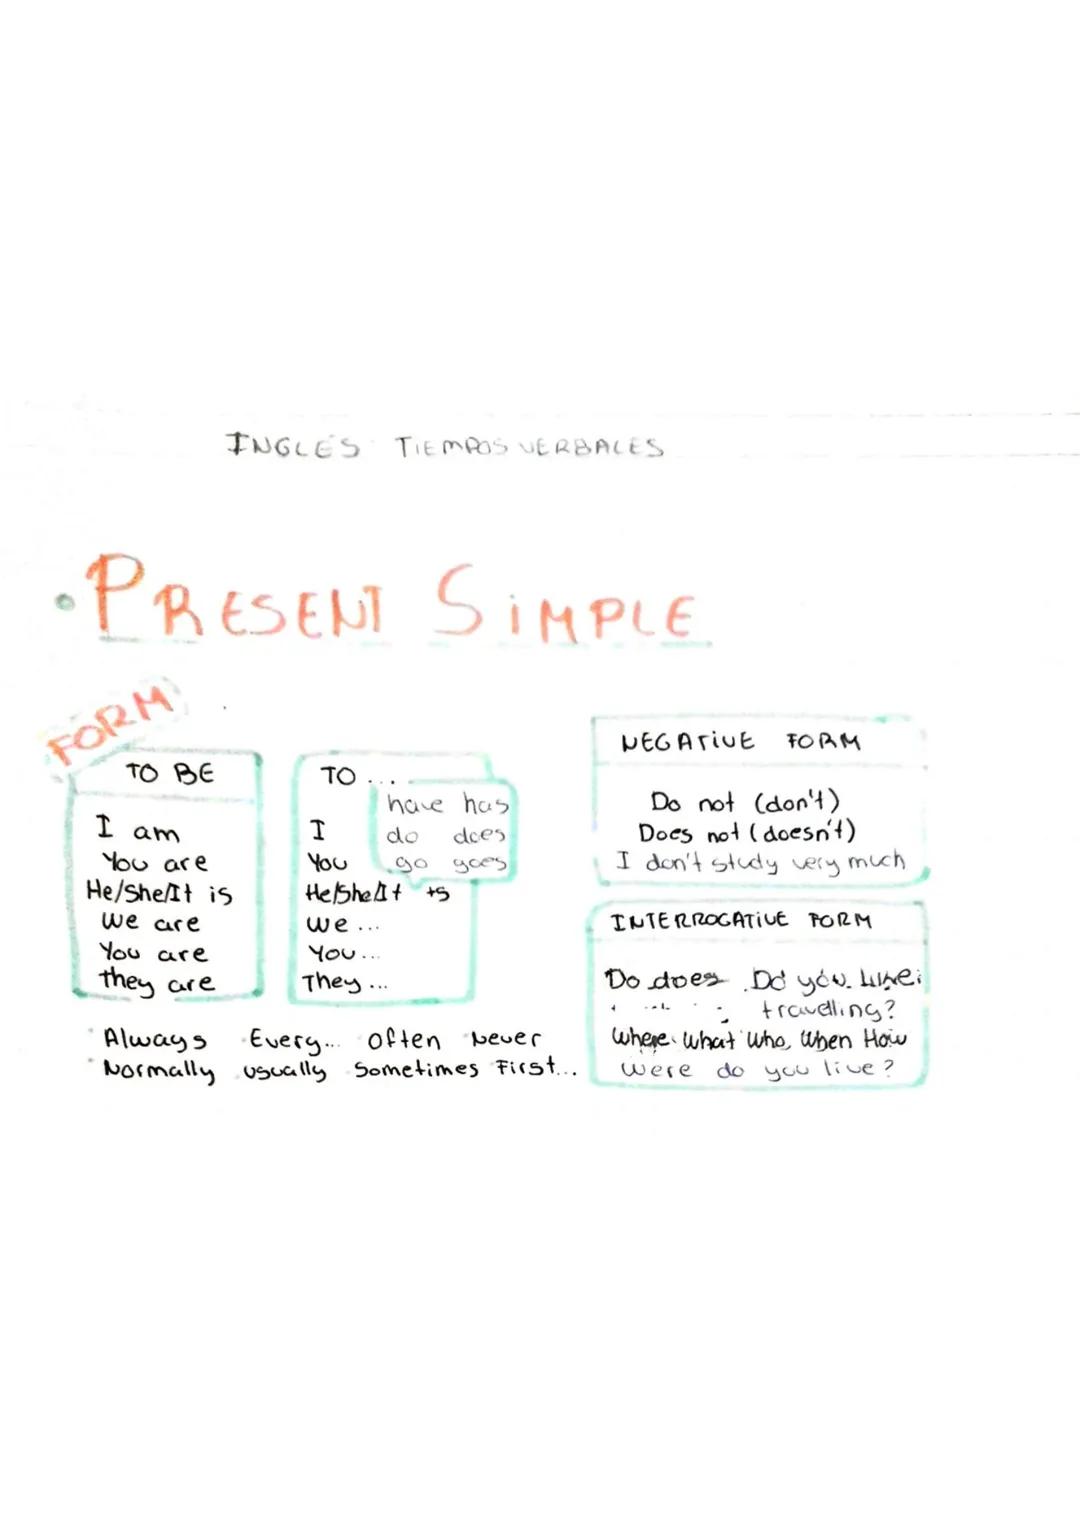 INGLÉS TIEMPOS VERBALES
• PRESENT SIMPLE
FORM
TO BE
I am
You are
He/She/It is
We are
You are
they are
TO ...
have has
do does
go goes
I
You
He/She/It +s
We ...
You ...
They ...
Always Every... Often Never
Normally usually Sometimes First...
NEGATIVE FORM
Do not (don't)
Does not (doesn't)
I don't study very much
INTERROGATIVE FORM
Do does Do you like
travelling?
Where What Who, When How
Were do you live?